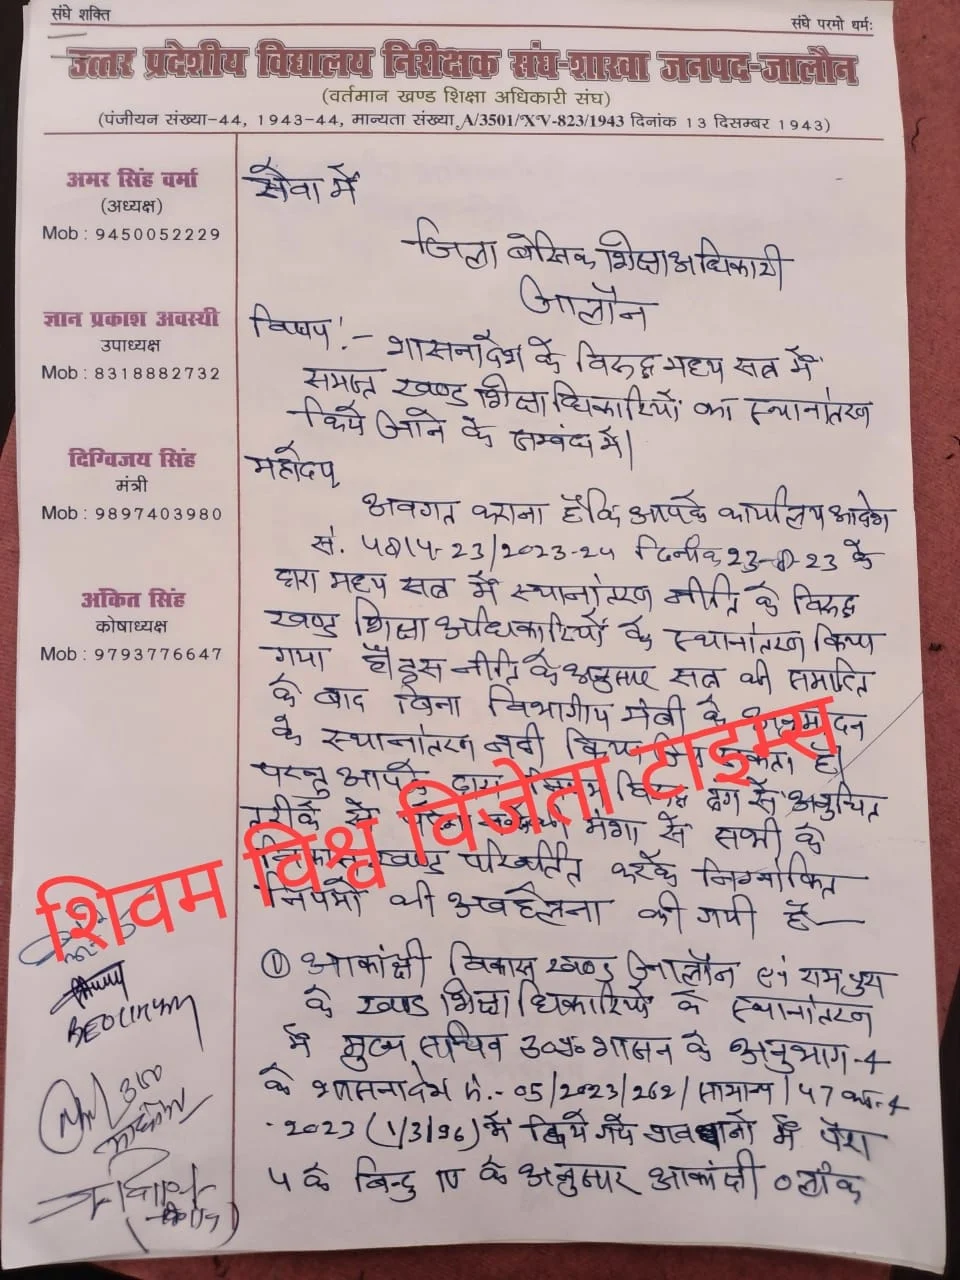 संघे शक्ति
संघे परमो धर्मः
उत्तर प्रदेशीय विद्यालय निरीक्षक संघ-शाखा जनपद-जालौन
(वर्तमान खण्ड शिक्षा अधिकारी संघ)
(पंजीयन संख्या-44, 1943-44, मान्यता संख्या A/3501/XV-823/1943 दिनांक 13 दिसम्बर 1943)
अमर सिंह वर्मा
(अध्यक्ष)
Mob : 9450052229
ज्ञान प्रकाश अवस्थी
उपाध्यक्ष
Mob : 8318882732
दिग्विजय सिंह
मंत्री
Mob : 9897403980
अंकित सिंह
कोषाध्यक्ष
Mob : 9793776647
सेवा में
जिला बेसिक शिक्षा अधिकारी
जालौन
विषय:- शासनादेश के विरुद्ध मध्य सत्र में
समस्त खण्ड शिक्षा अधिकारियों का स्थानांतरण
किये जाने के सम्बंध में।
महोदय
अवगत कराना है कि आपके कार्यालय आदेश
सं. /2023-24 दिनांक 23 के
द्वारा मध्य सत्र में स्थानांतरण नीति के विरुद्ध
खण्ड शिक्षा अधिकारियों के स्थानांतरण किया
गया है। इस नीति के अनुसार सत्र की समाप्ति
के बाद बिना विभागीय मंत्री के अनुमोदन
के स्थानांतरण नहीं किया जा सकता है।
परन्तु आपके द्वारा ढंग से अनुचित
तरीके से मंशा से सभी के
विकास खण्ड परिवर्तित करके निम्नांकित
नियमों की अवहेलना की गयी है—
① आकांक्षी विकास खण्ड जालौन एवं रामपुरा
के खण्ड शिक्षा अधिकारियों के स्थानांतरण
में मुख्य सचिव उ०प्र० शासन के अनुभाग-4
के शासनादेश सं.- 05/2023/262/सामान्य/47 का-4
-2023 (1/3/96) में दिये गये प्रावधानों में पैरा
5 के बिन्दु IV के अनुसार आकांक्षी ब्लॉक
शिवम विश्व विजेता टाइम्स